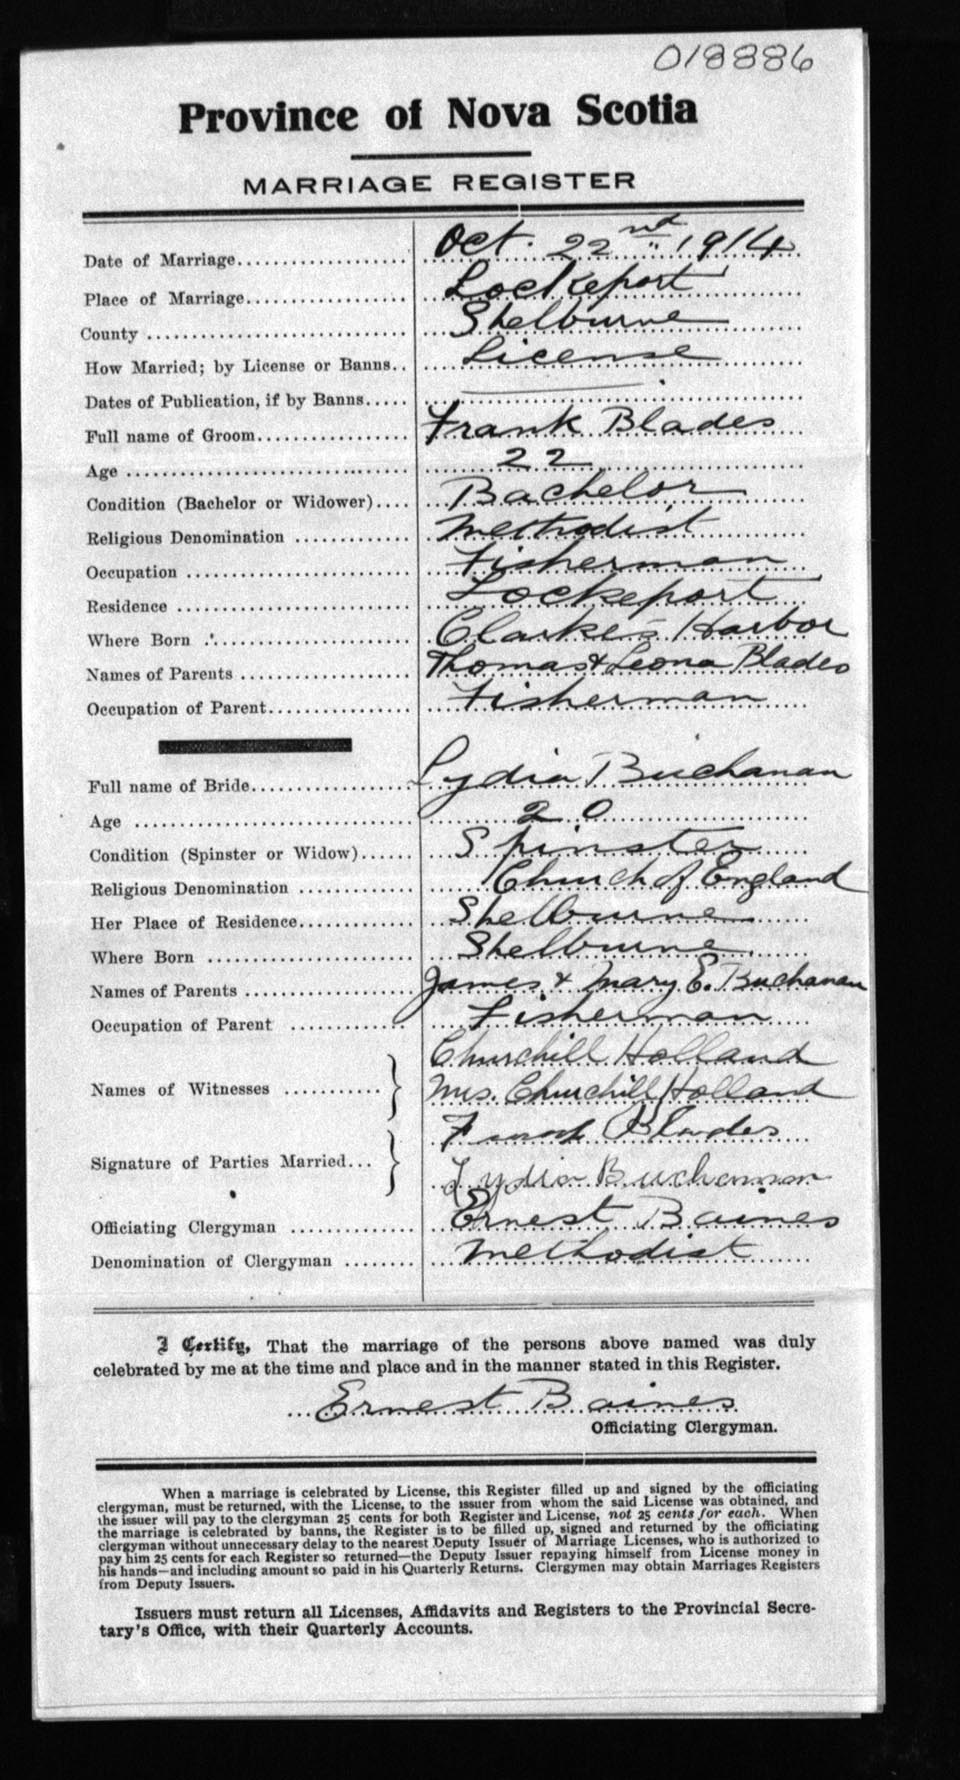 018886
Province of Nova Scotia
MARRIAGE REGISTER
Date of Marriage.................... Oct. 22nd 1914
Place of Marriage................... Lockeport
County .............................. Shelburne
How Married; by License or Banns.. License
Dates of Publication, if by Banns.....
Full name of Groom.................. Frank Blades
Age ................................. 22
Condition (Bachelor or Widower).... Bachelor
Religious Denomination ............. Methodist
Occupation .......................... Fisherman
Residence ........................... Lockeport
Where Born .......................... Clarke's Harbor
Names of Parents .................... Thomas & Leona Blades
Occupation of Parent................. Fisherman
Full name of Bride................... Lydia Buchanan
Age ................................. 20
Condition (Spinster or Widow)...... Spinster
Religious Denomination ............. Church of England
Her Place of Residence.............. Shelburne
Where Born .......................... Shelburne
Names of Parents .................... James & Mary E. Buchanan
Occupation of Parent ............... Fisherman
Churchill Holland
Names of Witnesses ........... } Mrs. Churchill Holland
Frank Blades
Signature of Parties Married... } Lydia Buchanan
Officiating Clergyman .............. Ernest Baines
Denomination of Clergyman ........ Methodist
I Certify, That the marriage of the persons above named was duly
celebrated by me at the time and place and in the manner stated in this Register.
Ernest Baines
Officiating Clergyman.
When a marriage is celebrated by License, this Register filled up and signed by the officiating
clergyman, must be returned, with the License, to the issuer from whom the said License was obtained, and
the issuer will pay to the clergyman 25 cents for both Register and License, not 25 cents for each. When
the marriage is celebrated by banns, the Register is to be filled up, signed and returned by the officiating
clergyman without unnecessary delay to the nearest Deputy Issuer of Marriage Licenses, who is authorized to
pay him 25 cents for each Register so returned—the Deputy Issuer repaying himself from License money in
his hands—and including amount so paid in his Quarterly Returns. Clergymen may obtain Marriages Registers
from Deputy Issuers.
Issuers must return all Licenses, Affidavits and Registers to the Provincial Secre-
tary's Office, with their Quarterly Accounts.